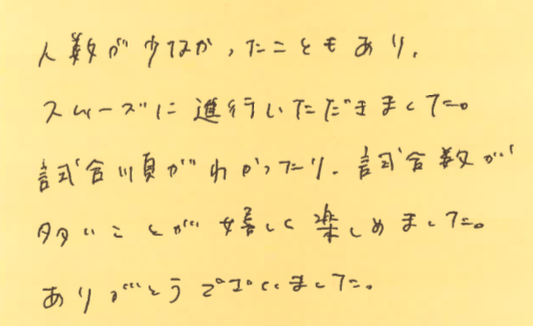 人数が少なかったこともあり、
スムーズに進行いただきました。
試合順がわかったり、試合数が
多いことが嬉しく楽しめました。
ありがとうございました。